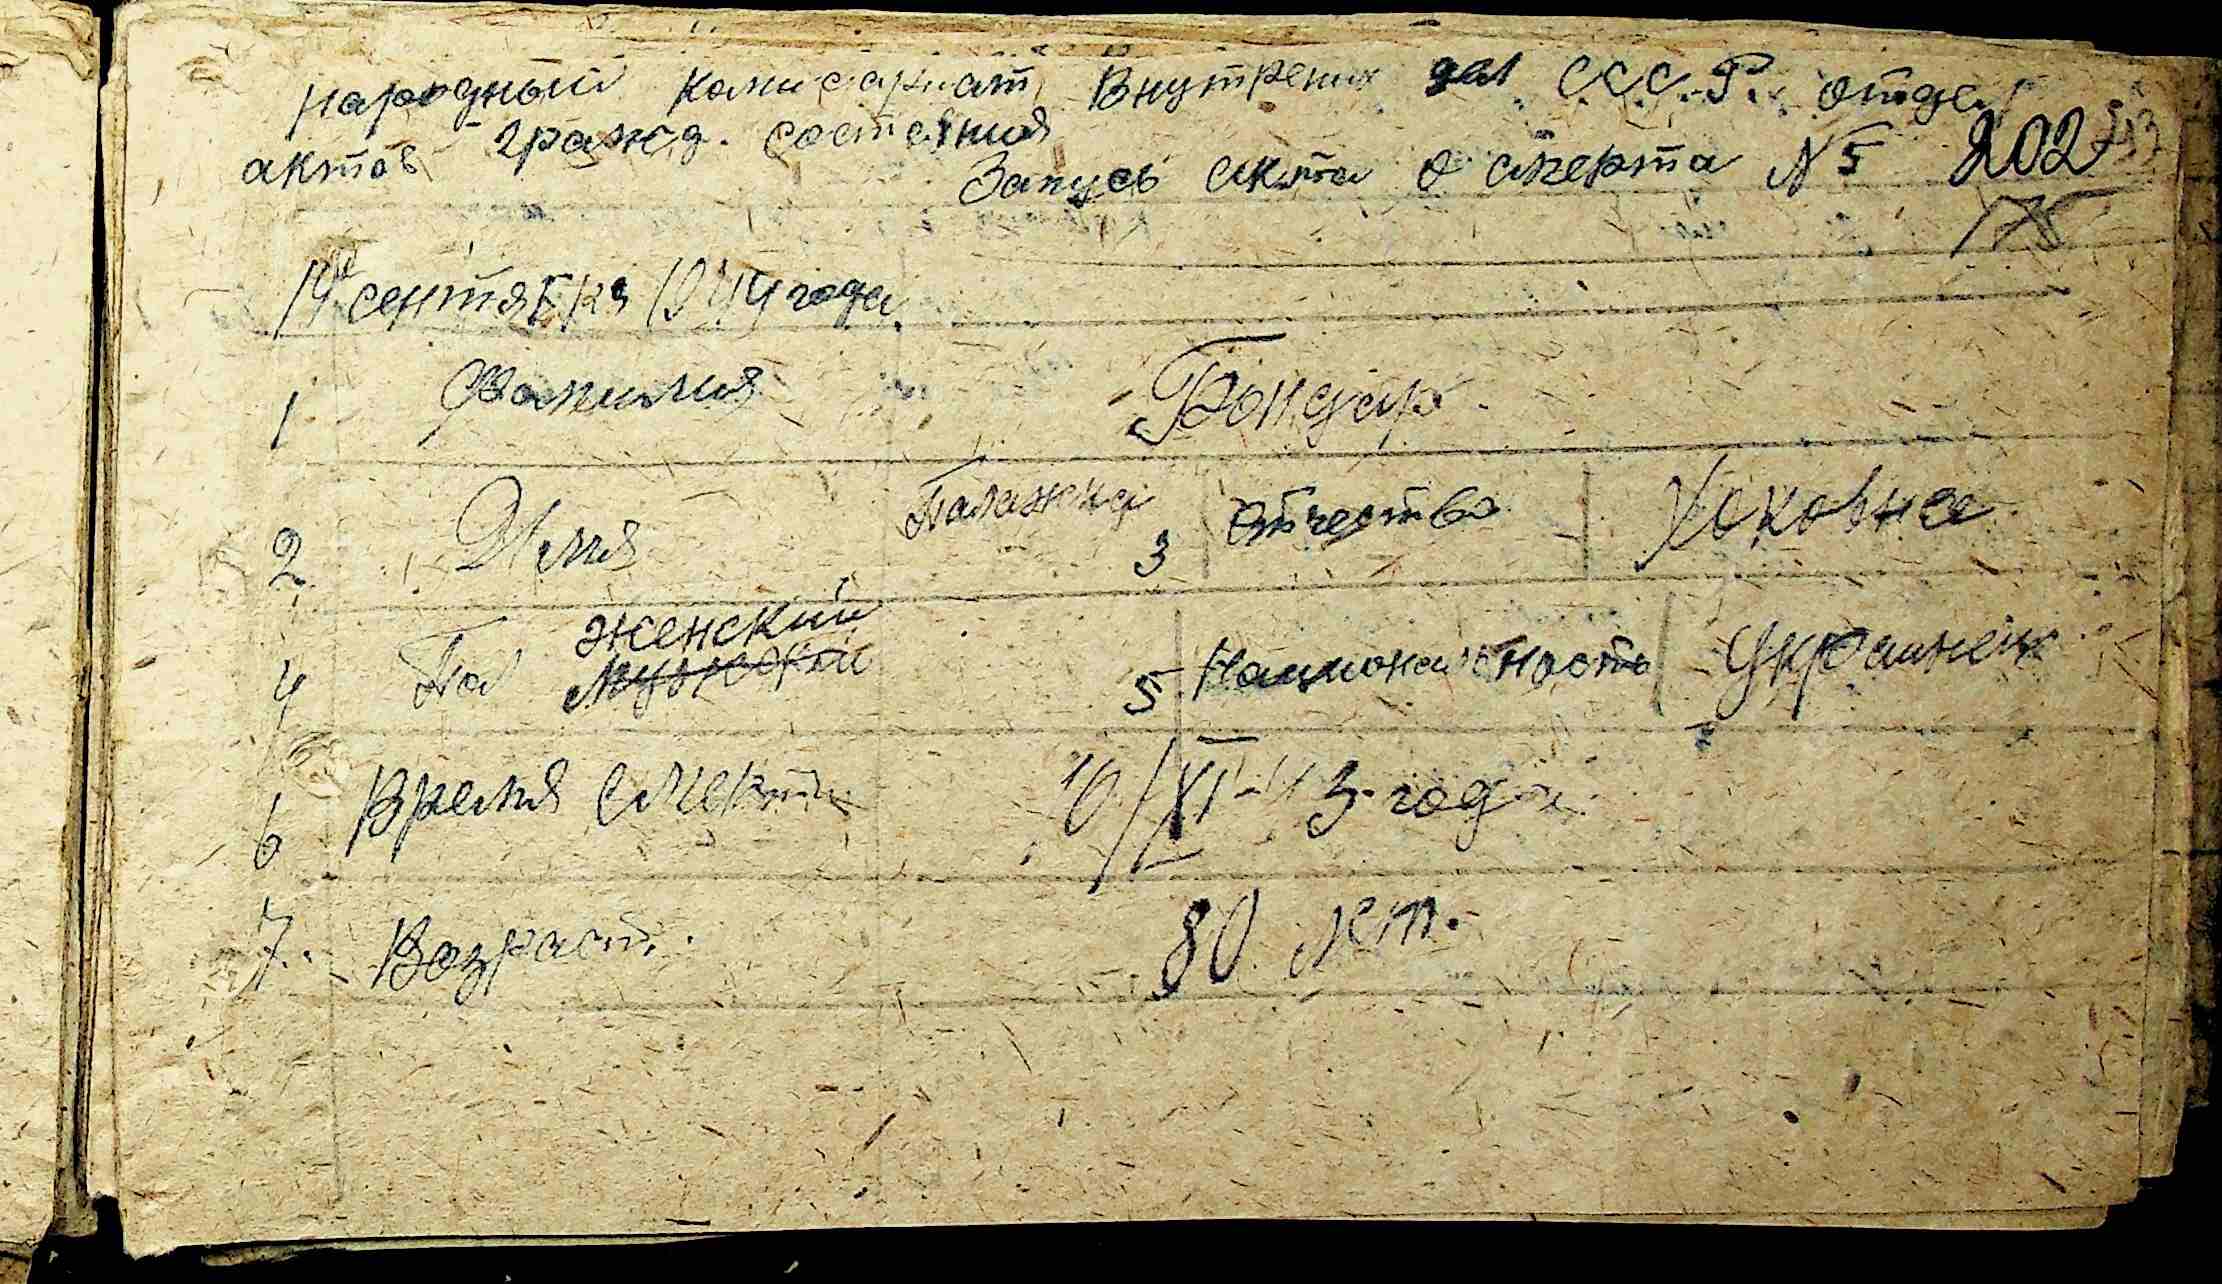 народный комисариат Внутрених дел С.С.С.Р. отдел
актов гражд. состояния
Запусь акта о смерта № 5 202
175
14 сентября 1944 года
1 Фамилия Бондар
2 Имя Палажка 3 Отчество
4 Пол женский мужской 5 Национальность Украинец
6 Время смерти 10/XI-43 года
7. Возраст. 80 лет.